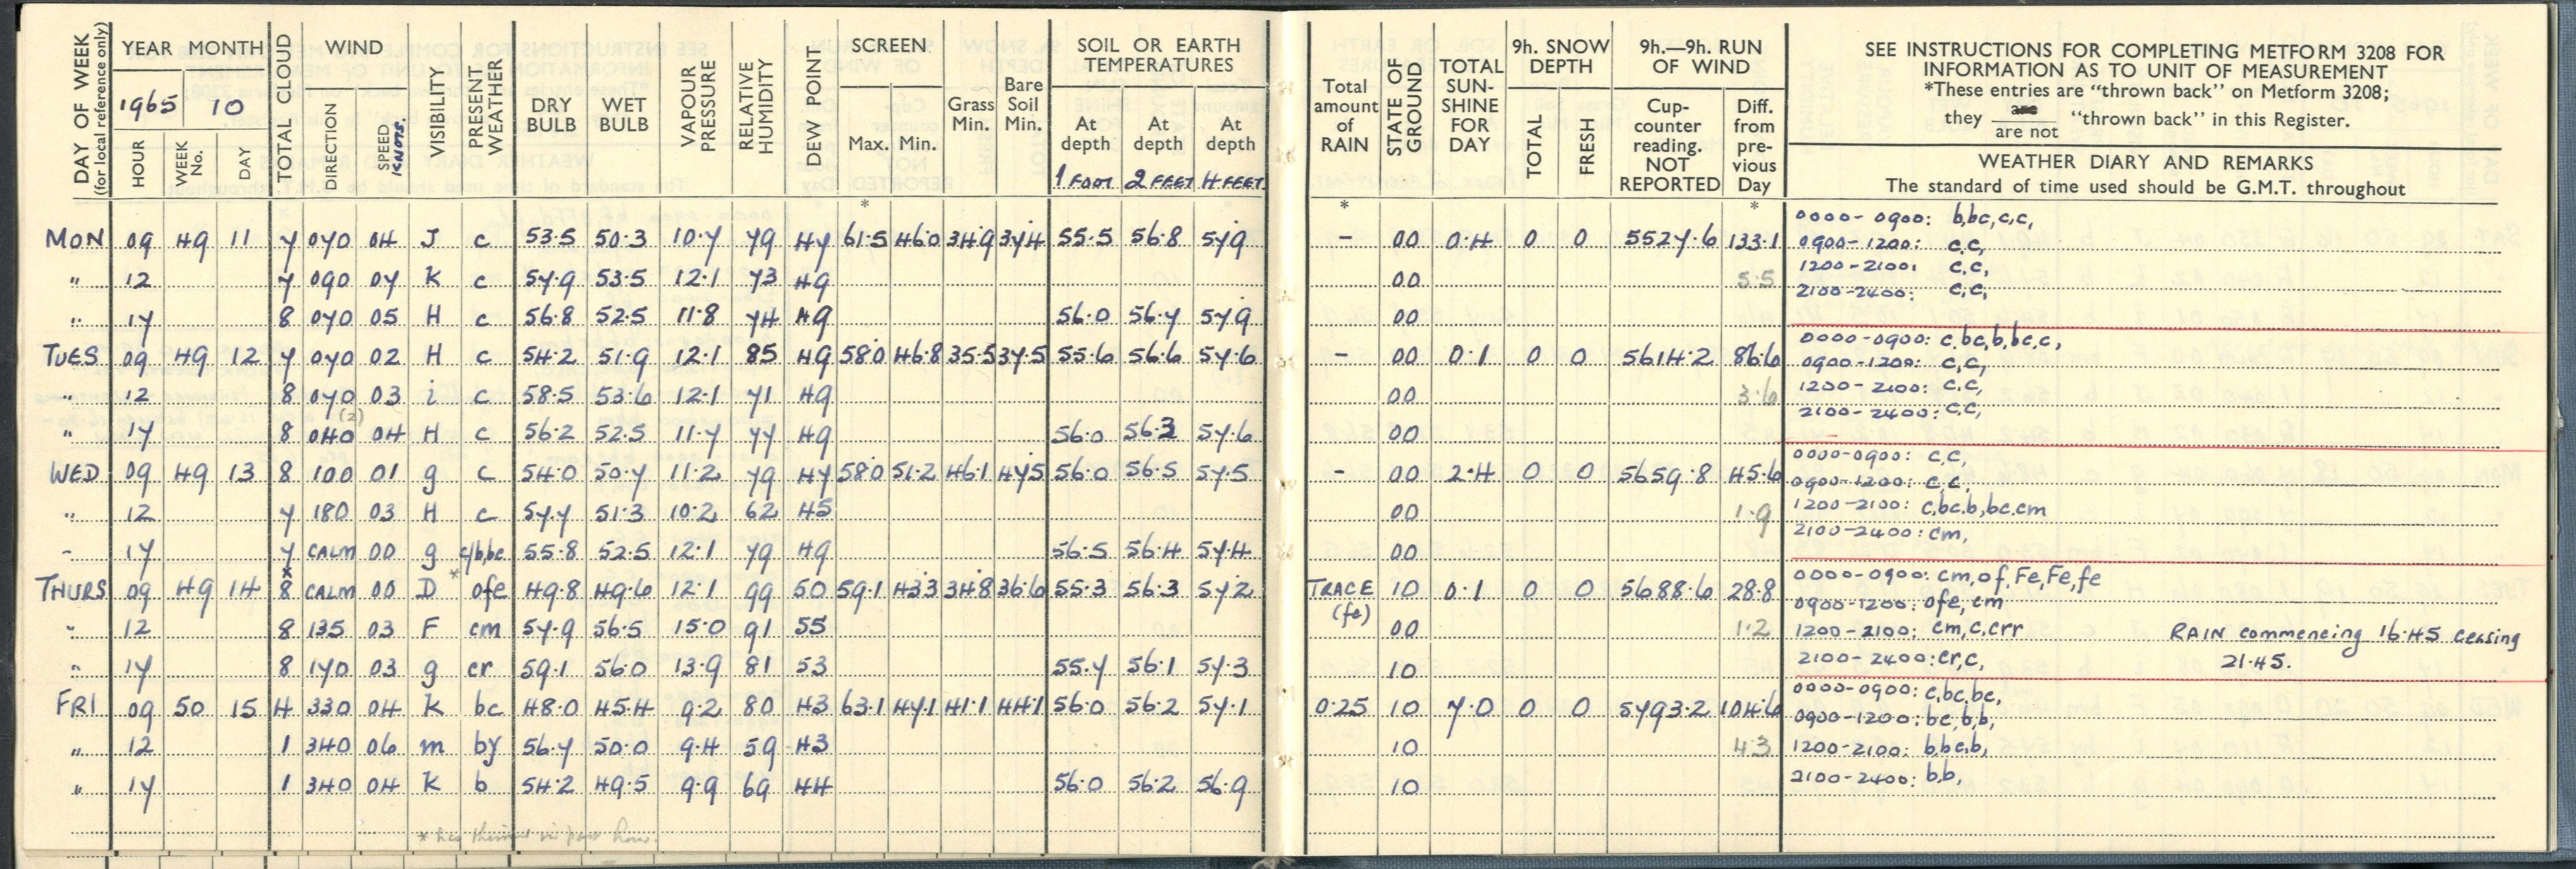 DAY OF WEEK (for local reference only)
YEAR MONTH
1965 10
HOUR
WEEK No.
DAY
TOTAL CLOUD
WIND
DIRECTION
SPEED KNOTS.
VISIBILITY
PRESENT WEATHER
DRY BULB
WET BULB
VAPOUR PRESSURE
RELATIVE HUMIDITY
DEW POINT
SCREEN
Max. Min.
Grass Min.
Bare Soil Min.
SOIL OR EARTH TEMPERATURES
At depth 1 FOOT
At depth 2 FEET
At depth 4 FEET
Total amount of RAIN
STATE OF GROUND
TOTAL SUN-SHINE FOR DAY
9h. SNOW DEPTH
TOTAL
FRESH
9h.—9h. RUN OF WIND
Cup-counter reading. NOT REPORTED
Diff. from pre-vious Day
SEE INSTRUCTIONS FOR COMPLETING METFORM 3208 FOR
INFORMATION AS TO UNIT OF MEASUREMENT
*These entries are "thrown back" on Metform 3208;
they are / are not "thrown back" in this Register.
WEATHER DIARY AND REMARKS
The standard of time used should be G.M.T. throughout
* * *
MON 09 49 11 7 070 04 J c 53.5 50.3 10.7 79 47 61.5 46.0 34.9 37.4 55.5 56.8 57.9 - 00 0.4 0 0 5527.6 133.1 0000-0900: b,bc,c,c,
0900-1200: c,c,
" 12 7 090 07 K c 57.9 53.5 12.1 73 49 00 5.5 1200-2100: c,c,
2100-2400: c,c,
" 17 8 070 05 H c 56.8 52.5 11.8 74 49 56.0 56.7 57.9 00
TUES 09 49 12 7 070 02 H c 54.2 51.9 12.1 85 49 58.0 46.8 35.5 37.5 55.6 56.6 57.6 - 00 0.1 0 0 5614.2 86.6 0000-0900: c,bc,b,bc,c,
0900-1200: c,c,
" 12 8 070 03 i c 58.5 53.6 12.1 71 49 00 3.6 1200-2100: c,c,
2100-2400: c,c,
" 17 8 040 (2) 04 H c 56.2 52.5 11.7 77 49 56.0 56.3 57.6 00
WED 09 49 13 8 100 01 g c 54.0 50.7 11.2 79 47 58.0 51.2 46.1 47.5 56.0 56.5 57.5 - 00 2.4 0 0 5659.8 45.6 0000-0900: c,c,
0900-1200: c,c,
" 12 7 180 03 H c 57.7 51.3 10.2 62 45 00 1.9 1200-2100: c,bc,b,bc,cm
2100-2400: cm,
" 17 7 CALM 00 g c/b,bc 55.8 52.5 12.1 79 49 56.5 56.4 57.4 00
THURS 09 49 14 8* CALM 00 D * ofe 49.8 49.6 12.1 99 50 59.1 43.3 34.8 36.6 55.3 56.3 57.2 TRACE (fe) 10 0.1 0 0 5688.6 28.8 0000-0900: cm,of,Fe,Fe,fe
0900-1200: ofe,cm
" 12 8 135 03 F cm 57.9 56.5 15.0 91 55 00 1.2 1200-2100: cm,c,crr RAIN commencing 16.45 ceasing
21.45.
" 17 8 170 03 g cr 59.1 56.0 13.9 81 53 55.7 56.1 57.3 10 2100-2400: cr,c,
FRI 09 50 15 4 330 04 K bc 48.0 45.4 9.2 80 43 63.1 47.1 41.1 44.1 56.0 56.2 57.1 0.25 10 7.0 0 0 5793.2 104.6 0000-0900: c,bc,bc,
0900-1200: bc,b,b,
" 12 1 340 06 m by 56.7 50.0 9.4 59 43 10 4.3 1200-2100: b,bc,b,
" 17 1 340 04 K b 54.2 49.5 9.9 69 44 56.0 56.2 56.9 10 2100-2400: b,b,
* has thinned in past hour.